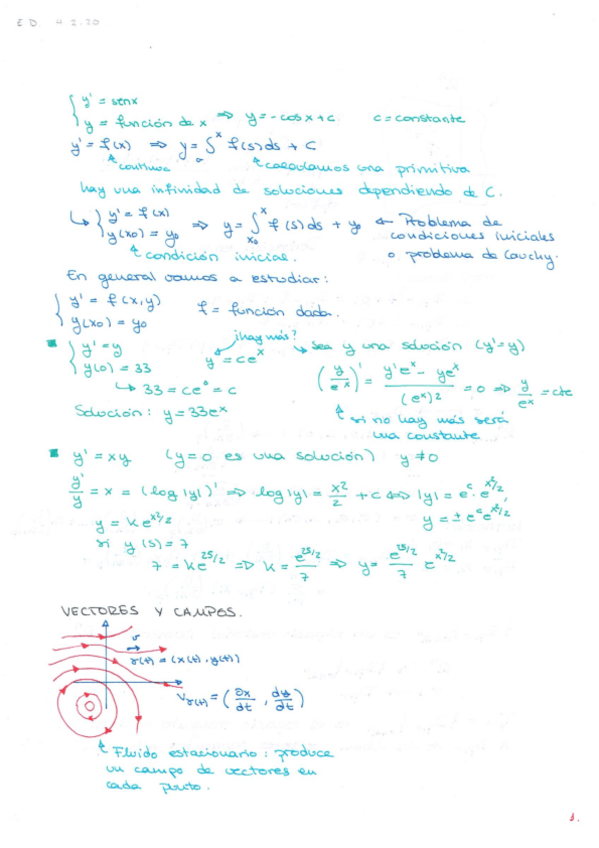 E D. 4.2.20
{ y' = senx
y = función de x ⇒ y = -cosx + c c = constante
y' = f(x) ⇒ y = ∫₀ˣ f(s)ds + C
continua calculamos una primitiva
hay una infinidad de soluciones dependiendo de C.
↳ { y' = f(x)
y(x₀) = y₀ ⇒ y = ∫ₓ₀ˣ f(s)ds + y₀ ← Problema de
condiciones iniciales
condición inicial. o problema de Cauchy.
En general vamos a estudiar:
{ y' = f(x,y)
y(x₀) = y₀ f = función dada.
¿hay más?
{ y' = y
y(0) = 33 y = ceˣ ↳ sea y una solución (y' = y)
↳ 33 = ce⁰ = c (y/eˣ)' = (y'eˣ - yeˣ)/(eˣ)² = 0 ⇒ y/eˣ = cte
Solución: y = 33eˣ si no hay más será
una constante
y' = xy (y=0 es una solución) y ≠ 0
y'/y = x = (log|y|)' ⇒ log|y| = x²/2 + c ⇔ |y| = e^c · e^(x²/2),
y = ke^(x²/2) y = ± e^c e^(x²/2)
si y(5) = 7
7 = ke^(25/2) ⇒ k = e^(25/2)/7 ⇒ y = e^(25/2)/7 e^(x²/2)
VECTORES Y CAMPOS.
v
γ(t) = (x(t), y(t))
V_γ(t) = (∂x/dt, dy/dt)
Fluido estacionario: produce
un campo de vectores en
cada punto.
1.